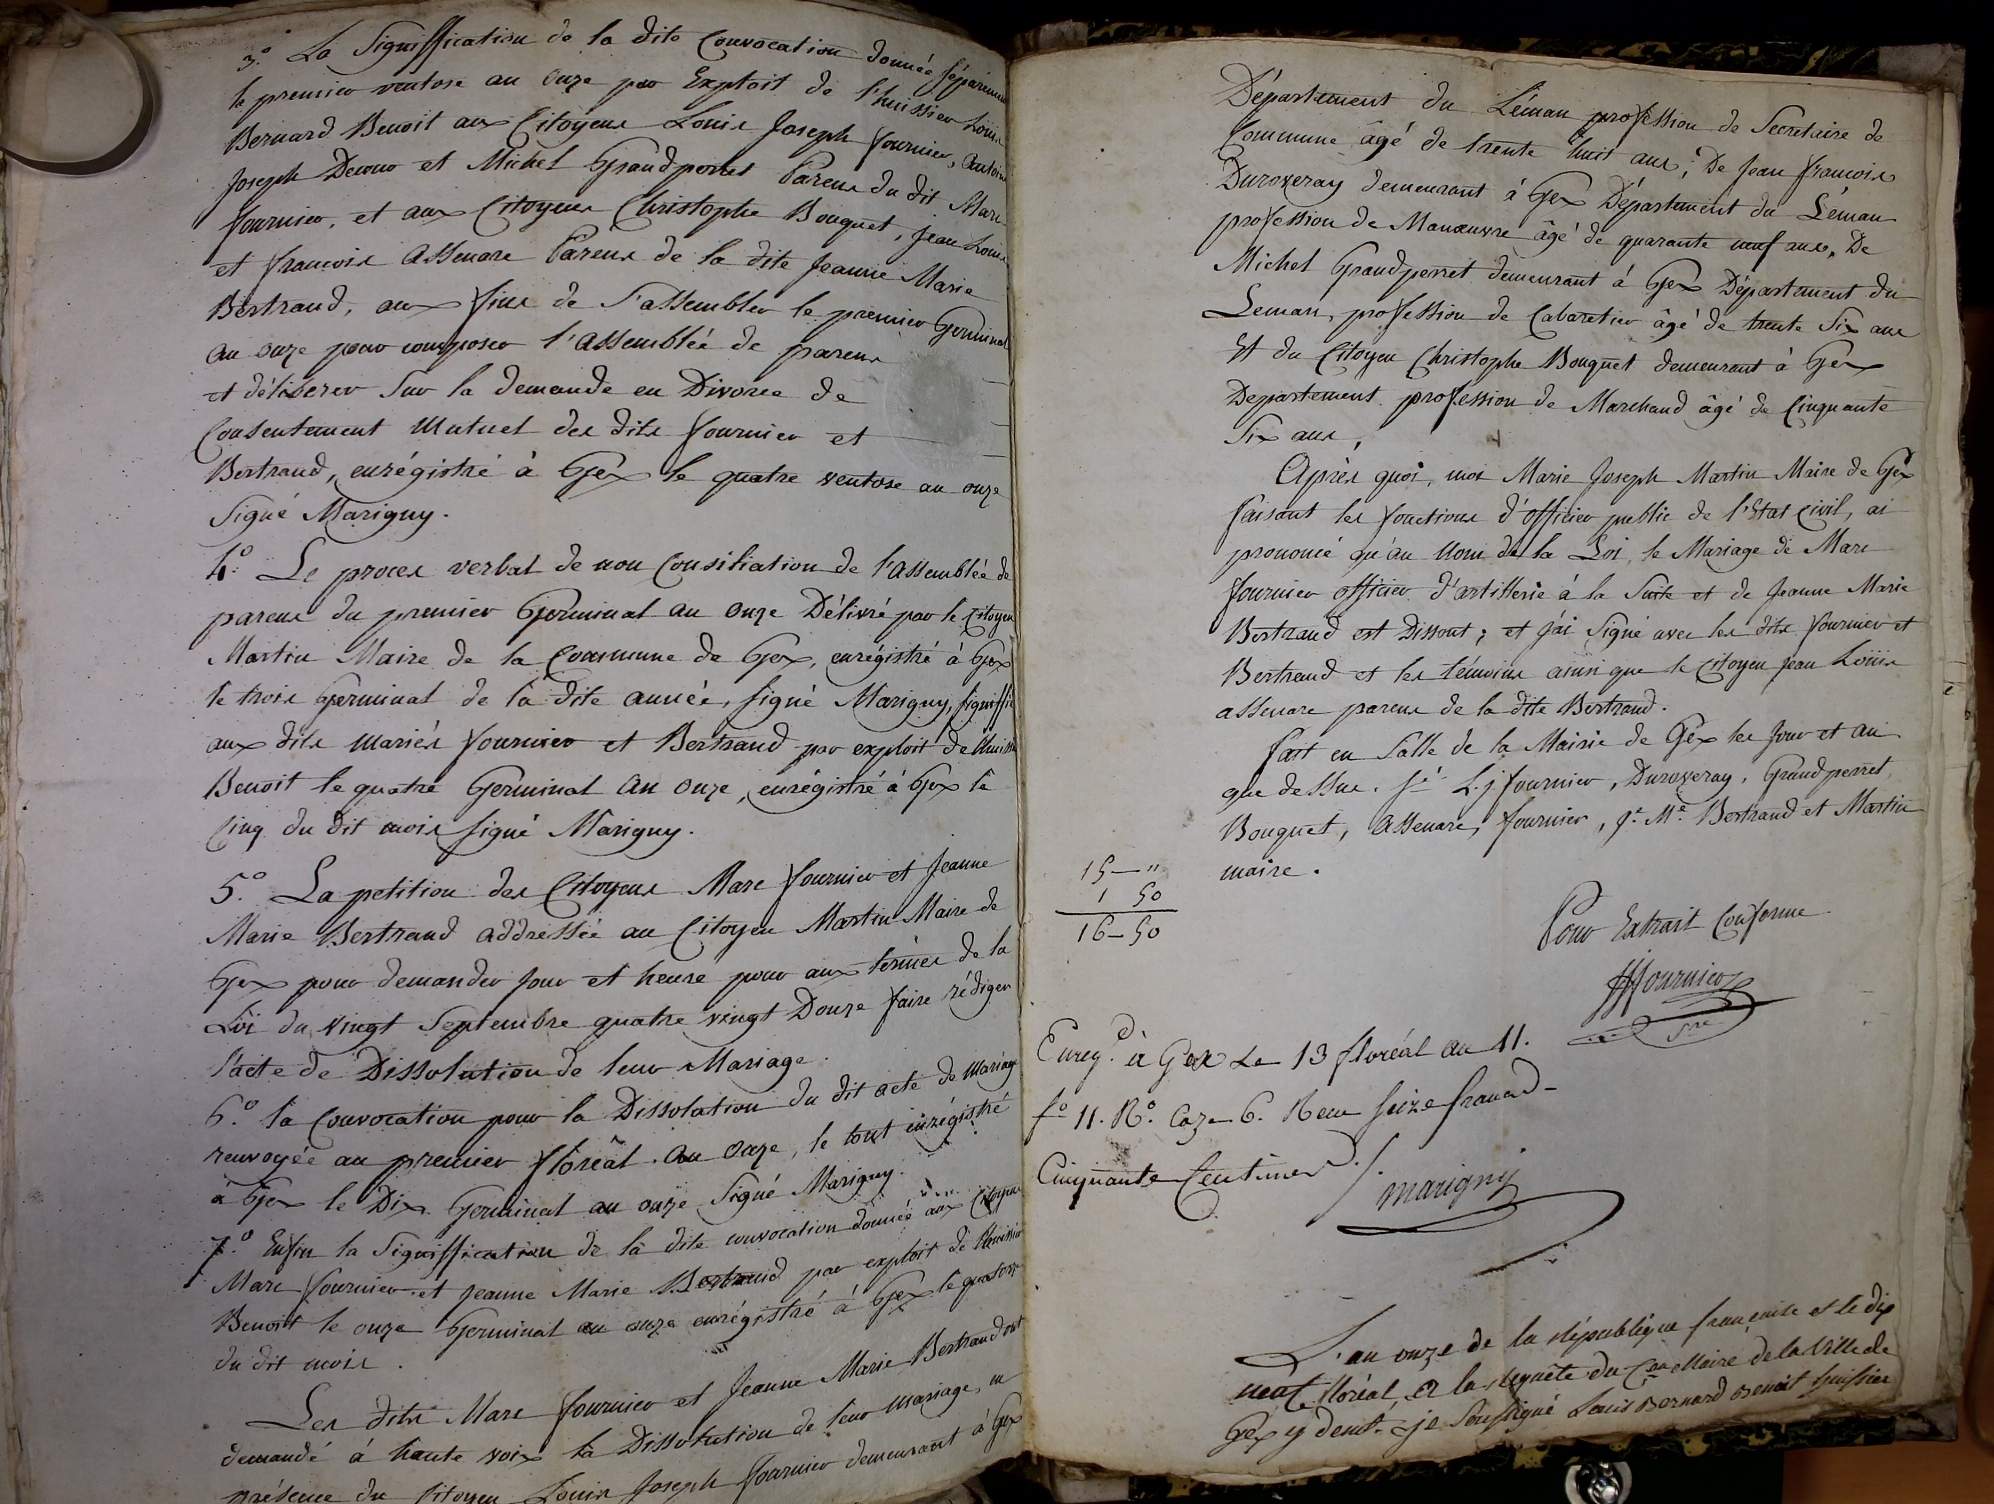 3.° La Signiffication de la dite Convocation donnée séparément
le premier ventose an onze par Exploit de l'huissier Loüis
Bernard Benoit aux Citoyens Louis Joseph fournier, Antoine
Joseph Decour et Michel Grandperret Parens du dit Marc
fournier, et aux Citoyens Christophe Bouquet, Jean Louis
et francois Assenare Parens de la dite Jeanne Marie
Bertrand, aux fins de S'assembler le premier Germinal
an onze pour composer l'Assemblée de parens
et délibérer Sur la demande en Divorce de
Consentement Mutuel des dits fournier et
Bertrand, enrégistré à Gex le quatre ventose an onze
Signé Marigny.
4.° Le proces verbal de non Consiliation de l'Assemblée de
parens du premier Germinal an onze Délivré par le Citoyen
Martin Maire de la Commune de Gex, enrégistré à Gex
le trois Germinal de la dite année, signé Marigny, signiffié
aux dits mariés fournier et Bertrand par exploit de l'huissier
Benoit le quatre Germinal an onze, enrégistré à Gex le
Cinq du dit mois signé Marigny.
5.° La petition des Citoyens Marc fournier et Jeanne
Marie Bertrand addressée au Citoyen Martin Maire de
Gex pour demander Jour et heure pour aux termes de la
Loi du vingt Septembre quatre vingt Douze faire rédiger
l'acte de Dissolution de leur Mariage.
6.° la Convocation pour la Dissolution du dit acte de Mariage
renvoyée au premier floréal an onze, le tout enrégistré
à Gex le Dix Germinal an onze Signé Marigny.
7.° Enfin la Signiffication de la dite convocation donnée aux Citoyens
Marc fournier et Jeanne Marie Bertrand par exploit de l'huissier
Benoit le onze Germinal an onze enrégistré à Gex le quatorze
du dit mois.
Les dits Marc fournier et Jeanne Marie Bertrand ont
demandé à haute voix la Dissolution de leur mariage, en
présence du Citoyen Louis Joseph fournier demeurant à Gex
Département du Léman profession de Secretaire de
Commune âgé de trente huit ans; De Jean francois
Duroveray demeurant à Gex Département du Léman
profession de Manœuvre âgé de quarante neuf ans, De
Michel Grandperret demeurant à Gex Département du
Leman, profession de Cabaretier âgé de trente Six ans
Et du Citoyen Christophe Bouquet demeurant à Gex
Departement profession de Marchand âgé de Cinquante
Six ans,
Après quoi, moi Marie Joseph Martin Maire de Gex
faisant les fonctions d'officier public de l'Etat civil, ai
prononcé qu'au Nom de la Loi, le Mariage de Marc
fournier officier d'artillerie à la Suite et de Jeanne Marie
Bertrand est Dissout; et j'ai Signé avec les dits fournier et
Bertrand et les témoins ainsi que le Citoyen Jean Loüis
assenare parens de la dite Bertrand.
fait en Salle de la Mairie de Gex les Jour et an
que dessus. Sé L. j fournier, Duroveray, Grandperret,
Bouquet, Assenare, fournier, Je. Me. Bertrand et Martin
maire.
15 — "
1 50
16 — 50
Pour Extrait Conforme
Fournier
Sre
Enregé. à Gex Le 13 floréal an 11.
fo 11. Ro. Caze 6. Reçu seize francs
Cinquante Centimes
Marigny
L'an onze de la république française et le dix
neuf floréal, à la requête du Cen Maire de la Ville de
Gex y demt. je soussigné Louis Bernard Benoit huissier